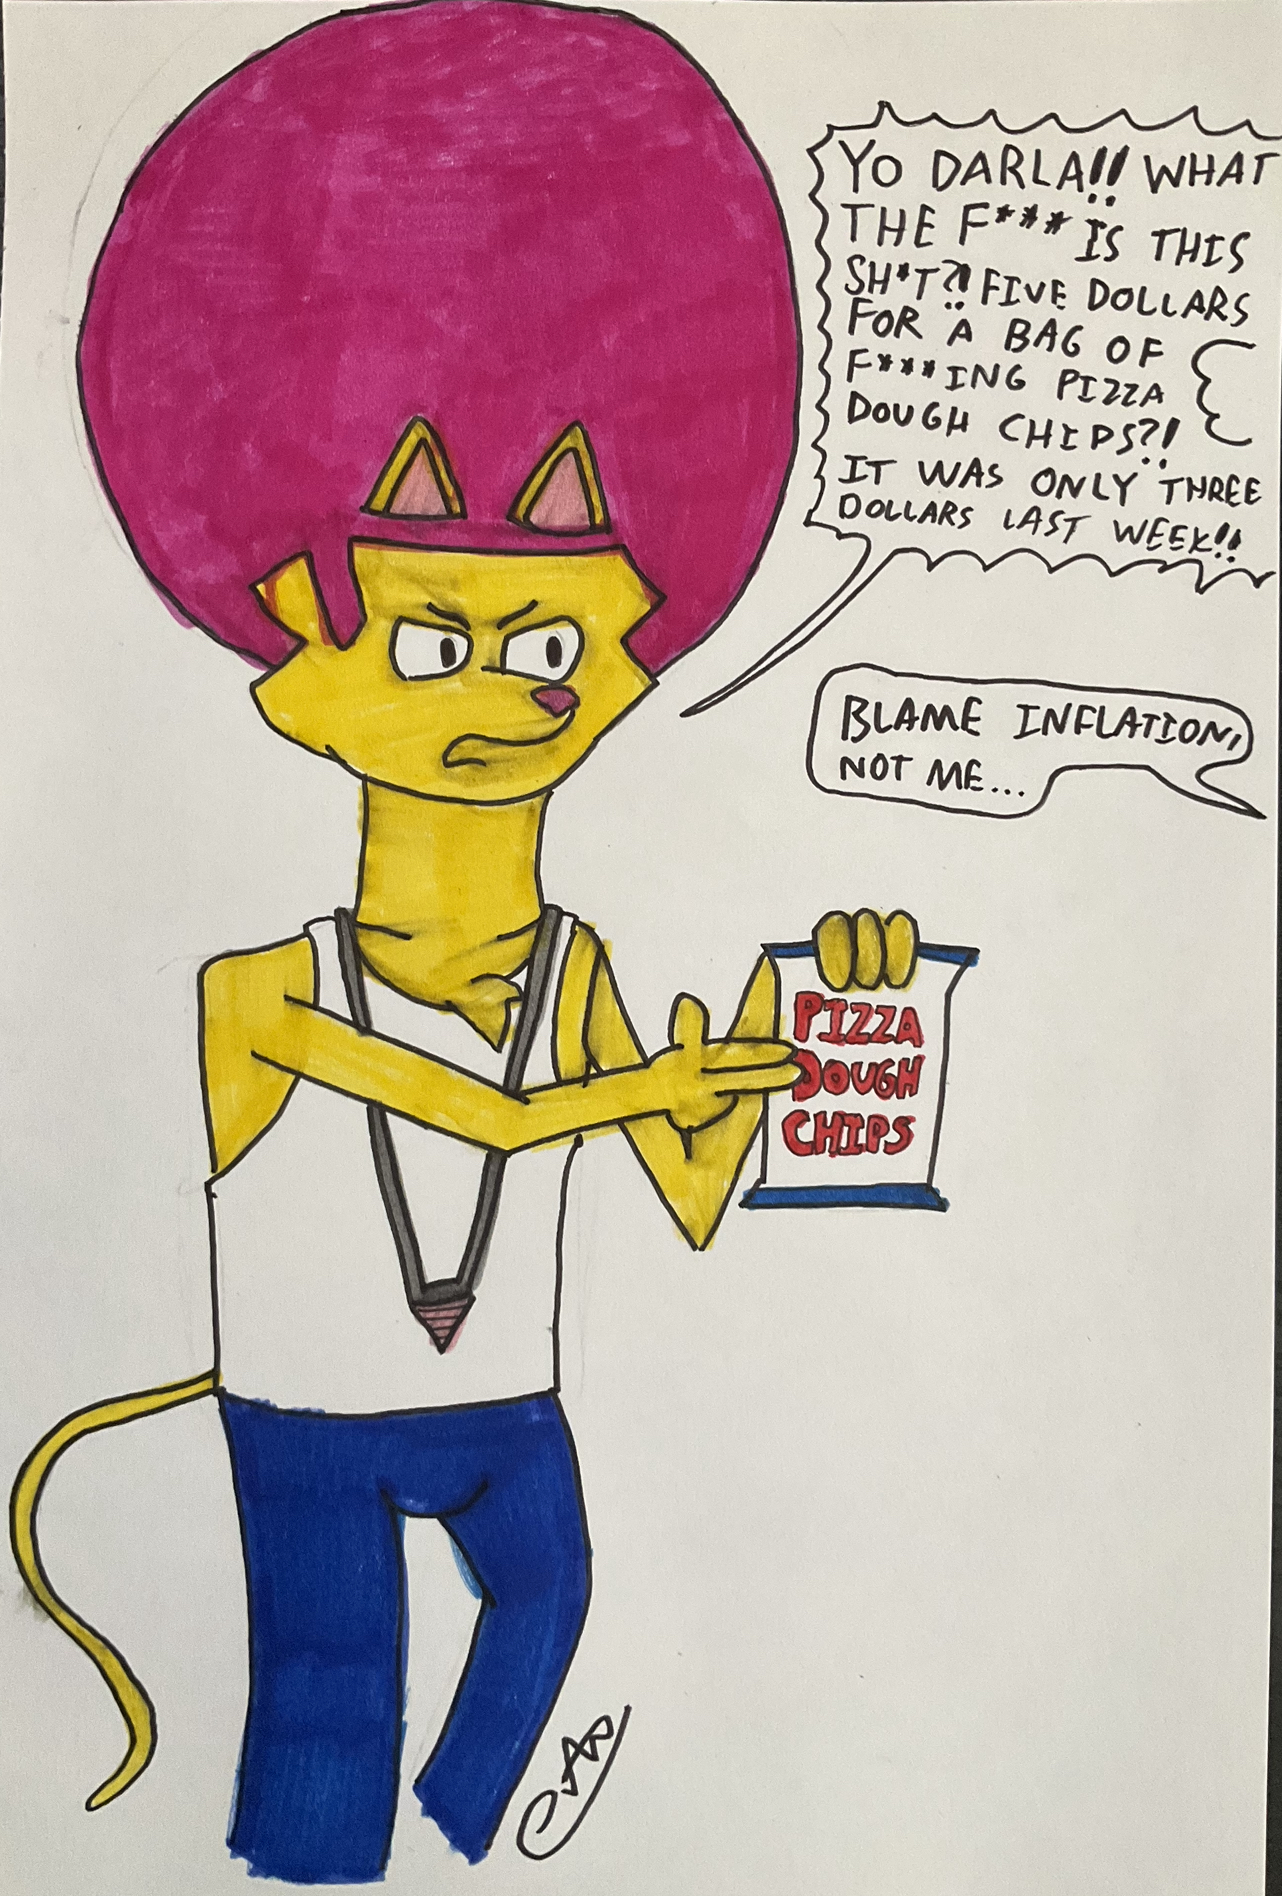 YO DARLA!! WHAT
THE F*** IS THIS
SH*T?! FIVE DOLLARS
FOR A BAG OF
F***ING PIZZA
DOUGH CHIPS?!
IT WAS ONLY THREE
DOLLARS LAST WEEK!!
BLAME INFLATION,
NOT ME...
PIZZA
DOUGH
CHIPS